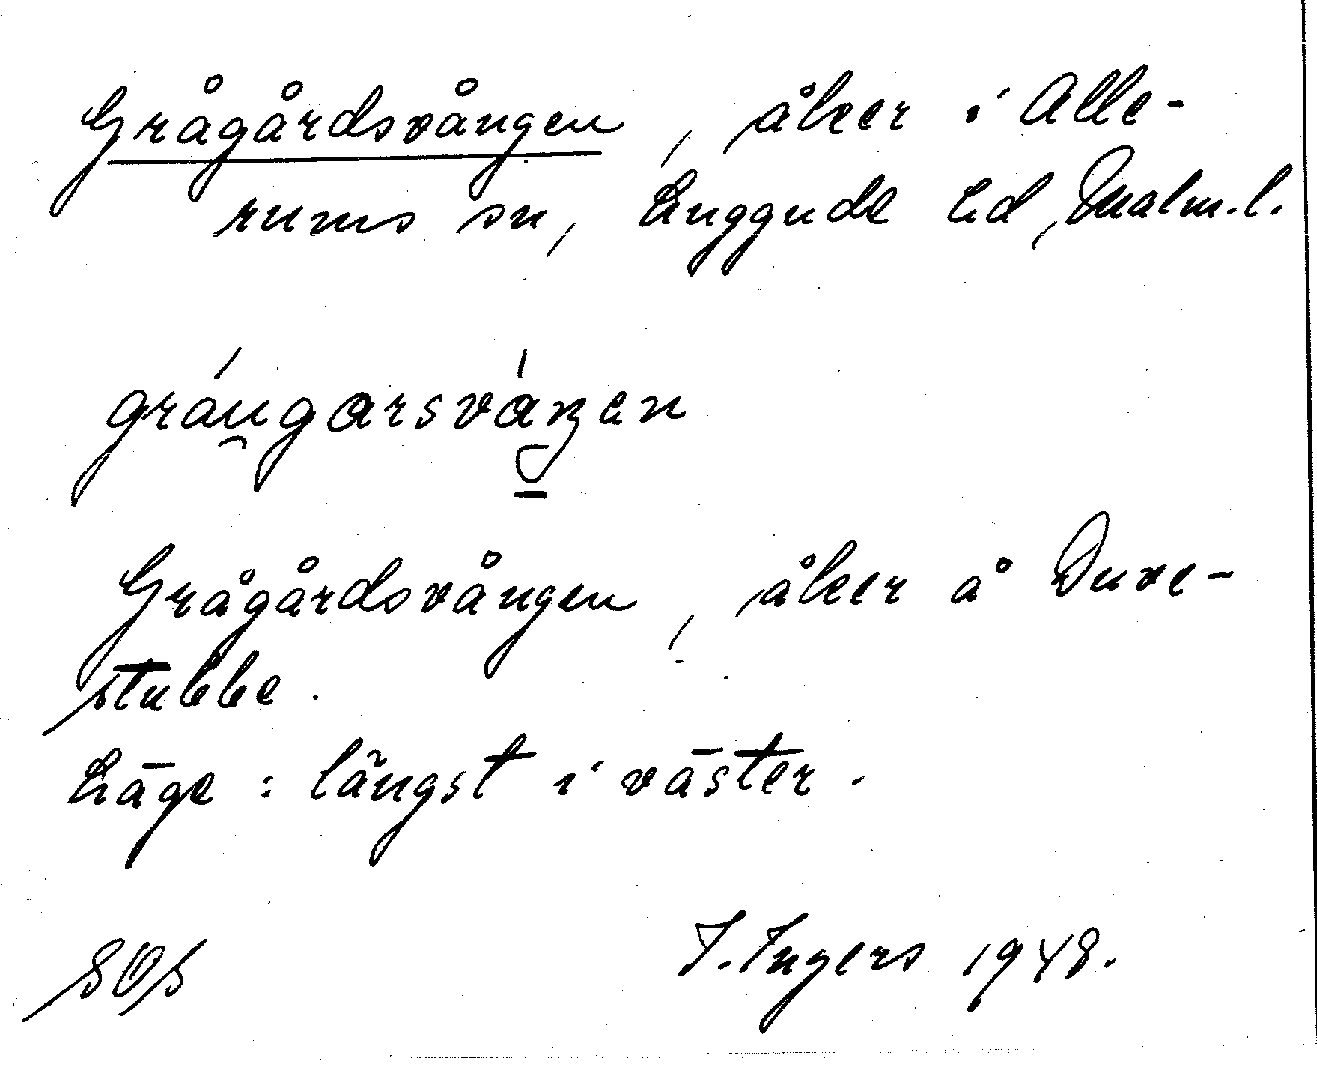 Grågårdsvången, åker i Alle-
rums sn, Luggude hd, Malm.l.
gráu̯garsváŋen
Grågårdsvången, åker å Duve-
stubbe.
Läge: längst i väster.
SOS I. Ingers 1948.